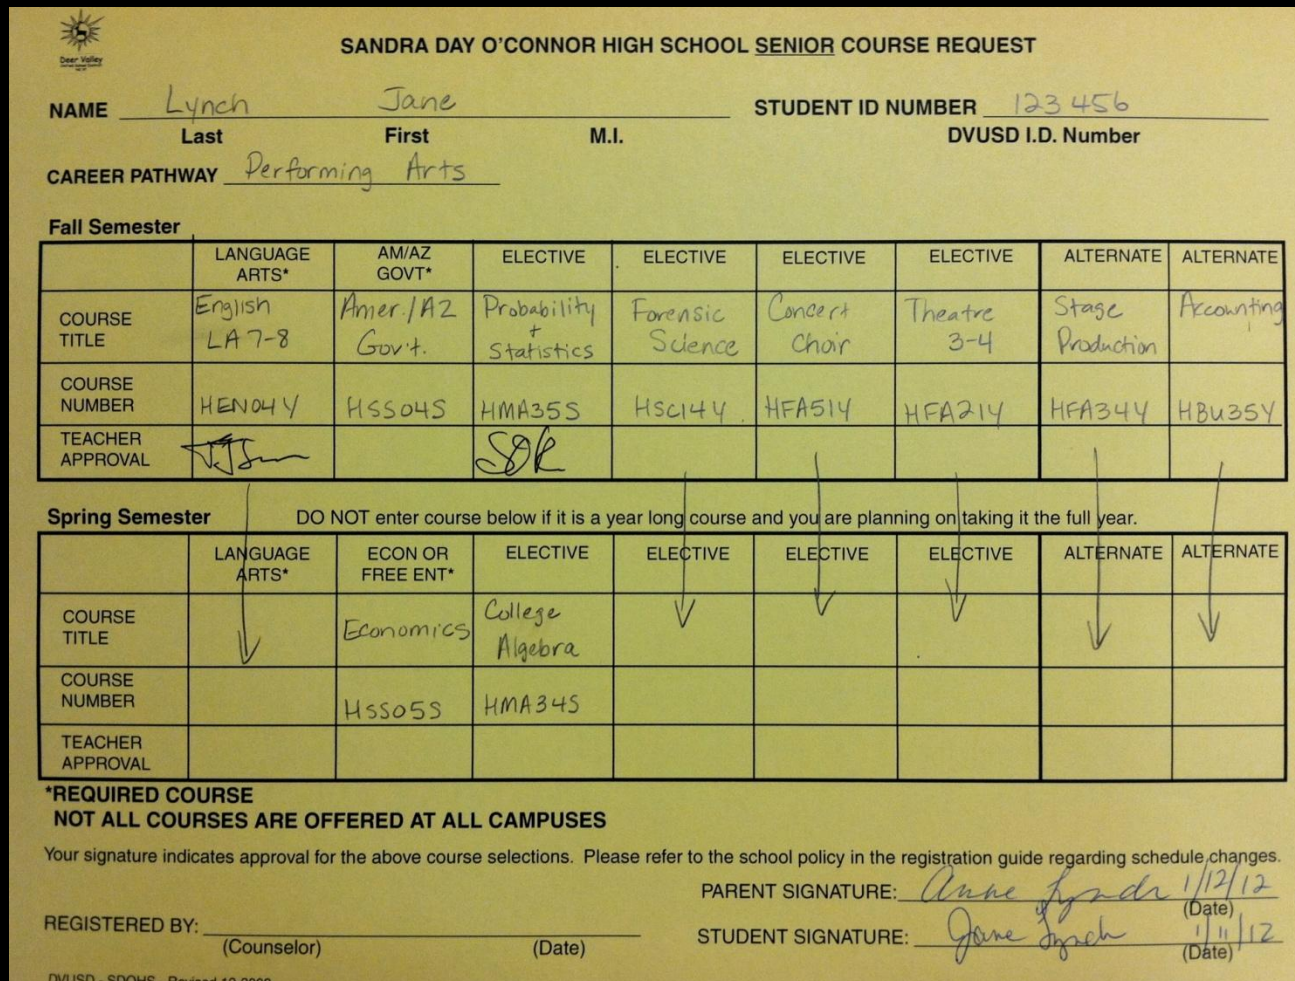 Deer Valley
SANDRA DAY O'CONNOR HIGH SCHOOL SENIOR COURSE REQUEST
NAME Lynch Jane STUDENT ID NUMBER 123456
Last First M.I. DVUSD I.D. Number
CAREER PATHWAY Performing Arts
Fall Semester
LANGUAGE ARTS* AM/AZ GOVT* ELECTIVE ELECTIVE ELECTIVE ELECTIVE ALTERNATE ALTERNATE
COURSE TITLE English LA 7-8 Amer./AZ Gov't. Probability + Statistics Forensic Science Concert Choir Theatre 3-4 Stage Production Accounting
COURSE NUMBER HEN04Y HSS04S HMA35S HSC14Y HFA51Y HFA21Y HFA34Y HBU35Y
TEACHER APPROVAL
Spring Semester DO NOT enter course below if it is a year long course and you are planning on taking it the full year.
LANGUAGE ARTS* ECON OR FREE ENT* ELECTIVE ELECTIVE ELECTIVE ELECTIVE ALTERNATE ALTERNATE
COURSE TITLE Economics College Algebra
COURSE NUMBER HSS05S HMA34S
TEACHER APPROVAL
*REQUIRED COURSE
NOT ALL COURSES ARE OFFERED AT ALL CAMPUSES
Your signature indicates approval for the above course selections. Please refer to the school policy in the registration guide regarding schedule changes.
PARENT SIGNATURE: Anne Lynch 1/12/12
(Date)
REGISTERED BY: STUDENT SIGNATURE: Jane Lynch 1/11/12
(Counselor) (Date) (Date)
DVUSD - SDOHS - Revised